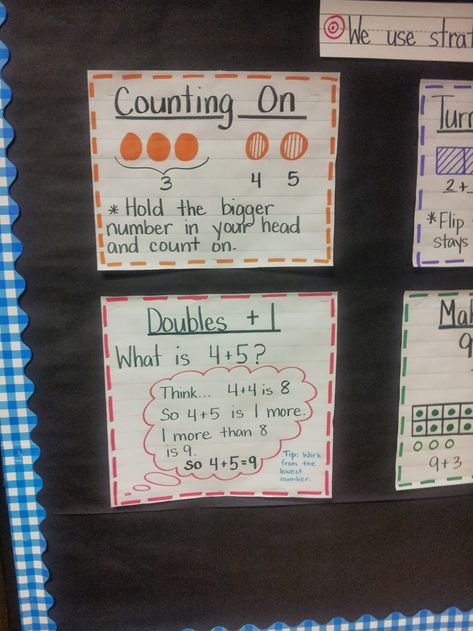 We use strat
Counting On
3
4 5
* Hold the bigger
number in your head
and count on.
Turn
2+
* Flip
stays
Doubles + 1
What is 4+5?
Think... 4+4 is 8
So 4+5 is 1 more.
1 more than 8
is 9.
so 4+5=9
Tip: Work
from the
lowest
number.
Mak
9
9+3